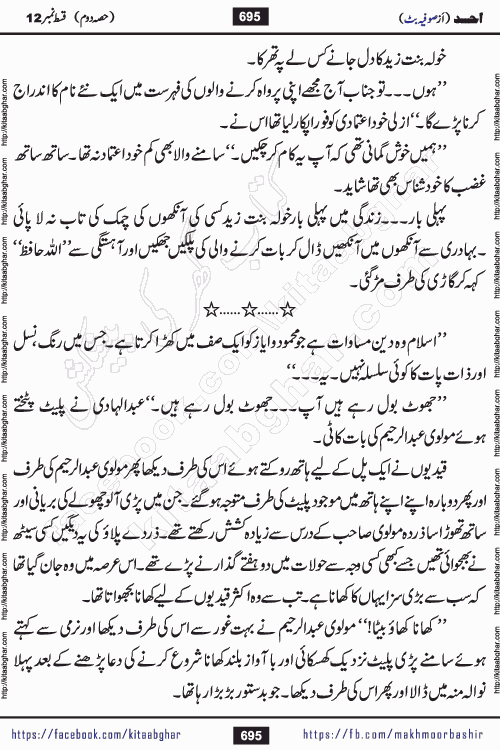 احد (از صوفیہ بٹ)
695
(حصہ دوم) قسط نمبر 12
خولہ بنت زید کا دل جانے کس لے پہ تھرکا۔
’’ہوں۔۔۔تو جناب آج مجھے اپنی پرواہ کرنے والوں کی فہرست میں ایک نئے نام کا اندراج
کرنا پڑے گا۔‘‘ ازلی خود اعتمادی کو فوراً پکار لیا تھا اس نے۔
’’ہمیں خوش گمانی تھی کہ آپ یہ کام کر چکیں۔‘‘ سامنے والا بھی کم خود اعتماد نہ تھا۔ ساتھ ساتھ
غضب کا خود شناس بھی تھا شاید۔
پہلی بار۔۔۔زندگی میں پہلی بار خولہ بنت زید کسی کی آنکھوں کی چمک کی تاب نہ لا پائی
۔ بہادری سے آنکھوں میں آنکھیں ڈال کر بات کرنے والی کی پلکیں جھکیں اور آہستگی سے ’’اللہ حافظ‘‘
کہہ کر گاڑی کی طرف مڑ گئی۔
☆......☆......☆
’’اسلام وہ دین مساوات ہے جو محمود و ایاز کو ایک صف میں کھڑا کرتا ہے۔ جس میں رنگ، نسل
اور ذات پات کا کوئی سلسلہ نہیں۔ یہ۔۔۔‘‘
’’جھوٹ بول رہے ہیں آپ۔۔۔جھوٹ بول رہے ہیں۔‘‘ عبدالہادی نے پلیٹ پٹختے
ہوئے مولوی عبدالرحیم کی بات کاٹی۔
قیدیوں نے ایک پل کے لیے ہاتھ روکتے ہوئے اس کی طرف دیکھا پھر مولوی عبدالرحیم کی طرف
اور پھر دوبارہ اپنے اپنے ہاتھ میں موجود پلیٹ کی طرف متوجہ ہو گئے۔ جن میں پڑی آلو چھولے کی بریانی اور
ساتھ تھوڑا سا زردہ مولوی صاحب کے درس سے زیادہ کشش رکھتے تھے۔ زردے پلاؤ کی یہ دیگیں کسی سیٹھ
نے بھجوائی تھیں جسے کبھی کسی وجہ سے حوالات میں دو ہفتے گذارنے پڑے تھے۔ اس عرصہ میں وہ جان گیا تھا
کہ سب سے بڑی سزا یہاں کا کھانا ہے۔ تب سے وہ اکثر قیدیوں کے لیے کھانا بھجواتا تھا۔
’’کھانا کھاؤ بیٹا!‘‘ مولوی عبدالرحیم نے بہت غور سے اس کی طرف دیکھا اور نرمی سے کہتے
ہوئے سامنے پڑی پلیٹ نزدیک کھسکائی اور با آواز بلند کھانا شروع کرنے کی دعا پڑھنے کے بعد پہلا
نوالہ منہ میں ڈالا اور پھر اس کی طرف دیکھا۔ جو بدستور بڑبڑا رہا تھا۔
http://kitaabghar.com
https://facebook.com/kitaabghar
695
https://fb.com/makhmoorbashir